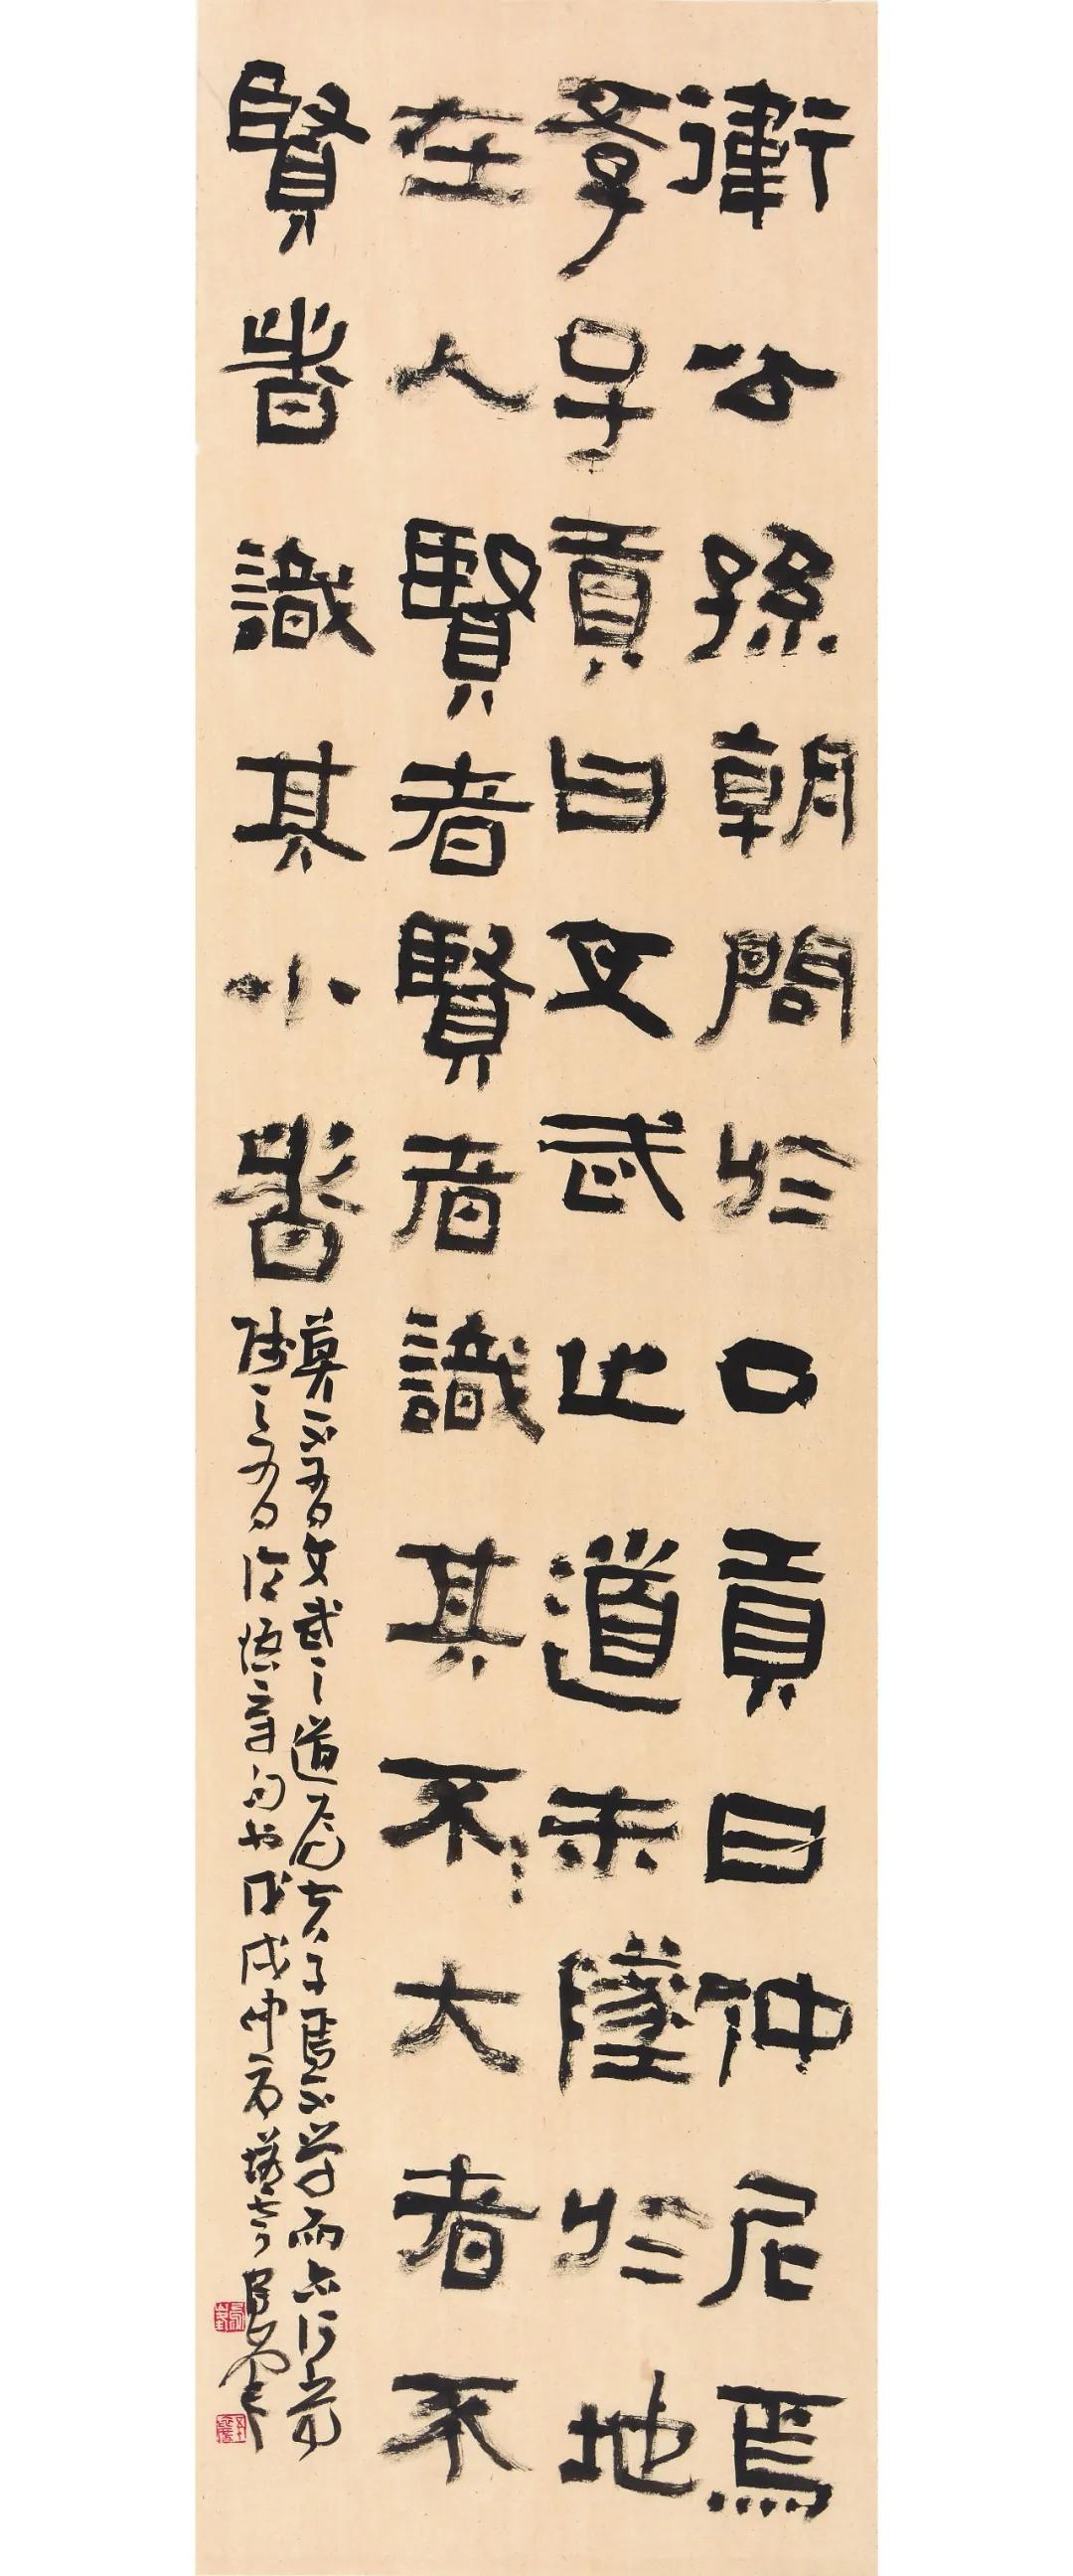 衛公孫朝問於口貢曰仲尼焉
學子貢曰文武之道未墜於地
在人賢者賢者識其不大者不
賢者識其小者
莫不有文武之道焉夫子焉不学而亦何常
師之有論語章句也戊戌中秋